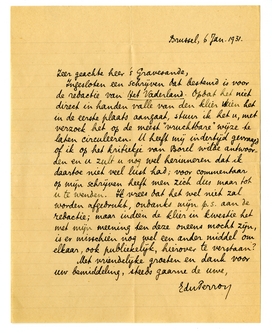 Brussel, 6 Jan. 1931.
Zeer geachte heer 's Gravesande,
Ingesloten een schrijven dat bestemd is voor
de redactie van Het Vaderland. Opdat het niet
direct in handen valle van den klier dien het
in de eerste plaats aangaat, stuur ik het u, met
verzoek het op de meest vruchtbare wijze te
laten circuleeren. U heeft mij indertijd gevraagd
of ik op het kritiekje van Borel wilde antwoor-
den en u zult u nog wel herinneren dat ik
daartoe niet veel lust had; voor commentaar
op mijn schrijven heeft men zich dus maar tot
u te wenden. Ik vrees dat het wel niet zal
worden afgedrukt, ondanks mijn p.s. aan de
redactie; maar indien de klier in kwestie het
met mijn meening ten deze oneens mocht zijn,
is er misschien nog wel een ander middel om
elkaar, ook publiekelijk, hierover te verstaan?
Met vriendelijke groeten en dank voor
uw bemiddeling, steeds gaarne de uwe,
EduPerron